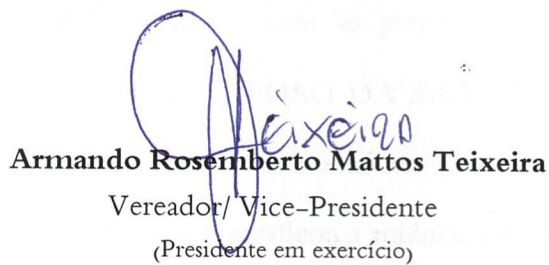 Teixeira
Armando Rosemberto Mattos Teixeira
Vereador/ Vice-Presidente
(Presidente em exercício)